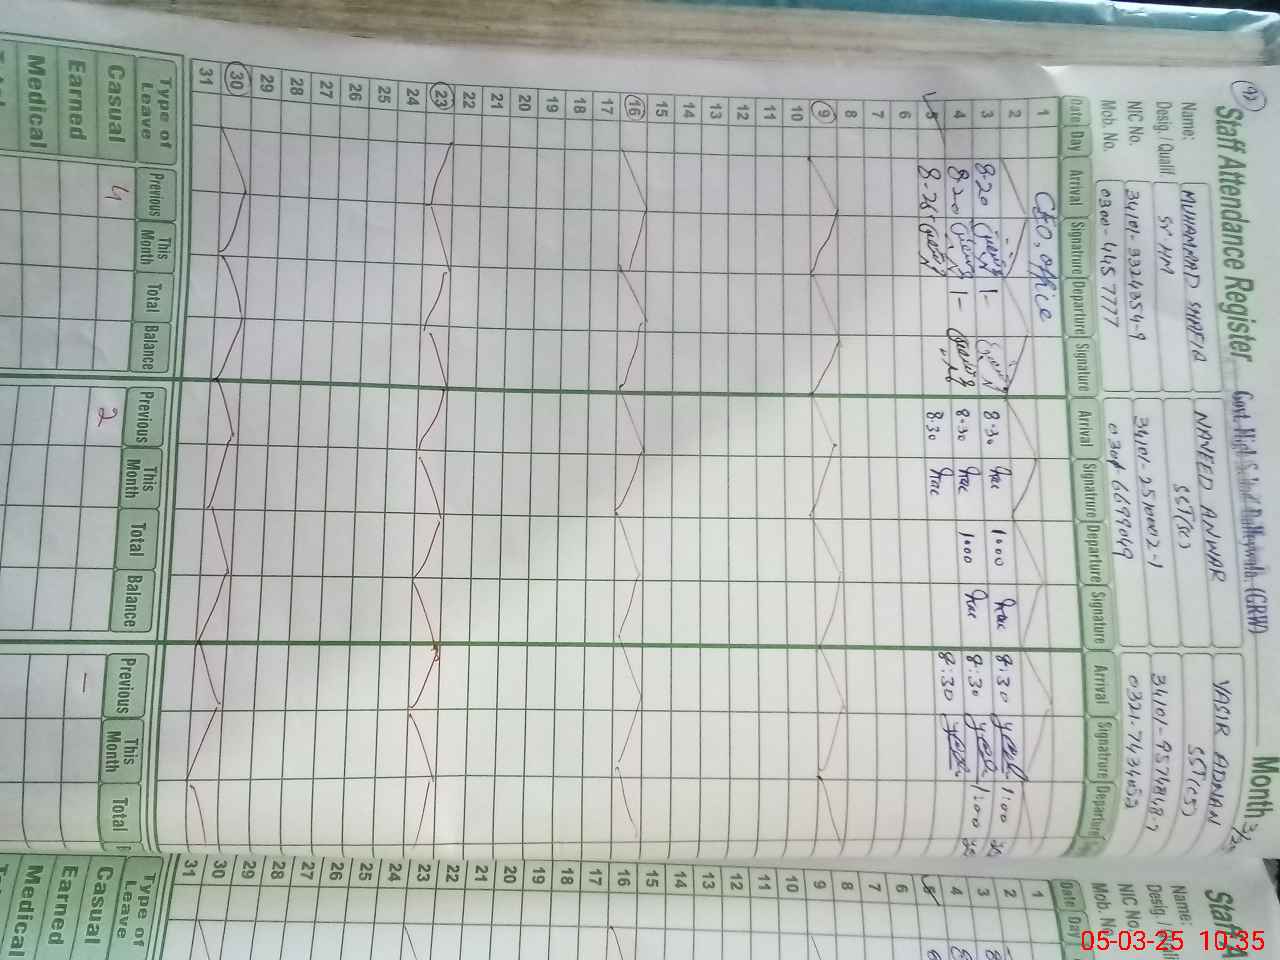 92
Staff Attendance Register
Govt. High School Dalleywala (GRW)
Month 3/25
Name: MUHAMMAD SHAFIQ
NAVEED ANWAR
YASIR ADNAN
Desig. / Qualif. Sr HM
SST(SC)
SST(CS)
NIC No. 34101-3324354-9
34101-2510002-1
Mob. No. 0300-4457777
Date Day Arrival Signatrure Departure Signature Arrival Signatrure Departure Signature Arrival Signatrure Departure
1 CEO, office
2
3 8-20 1- 8.30 1:00 8:30 1:00
4 8-20 1- 8.30 1:00 8:30 1:00
5 8-25 8:30 8:30
6
7
8
9
10
11
12
13
14
15
16
17
18
19
20
21
22
23
24
25
26
27
28
29
30
31
Type of Leave Previous This Month Total Balance Previous This Month Total Balance Previous This Month Total
Casual 4 2 —
Earned
Medical
Staff A
Name:
Desig. /
NIC No.
Mob. No.
Date Day
1
2
3
4
5
6
7
8
9
10
11
12
13
14
15
16
17
18
19
20
21
22
23
24
25
26
27
28
29
30
31
Type of Leave
Casual
Earned
Medical
05-03-25 10:35